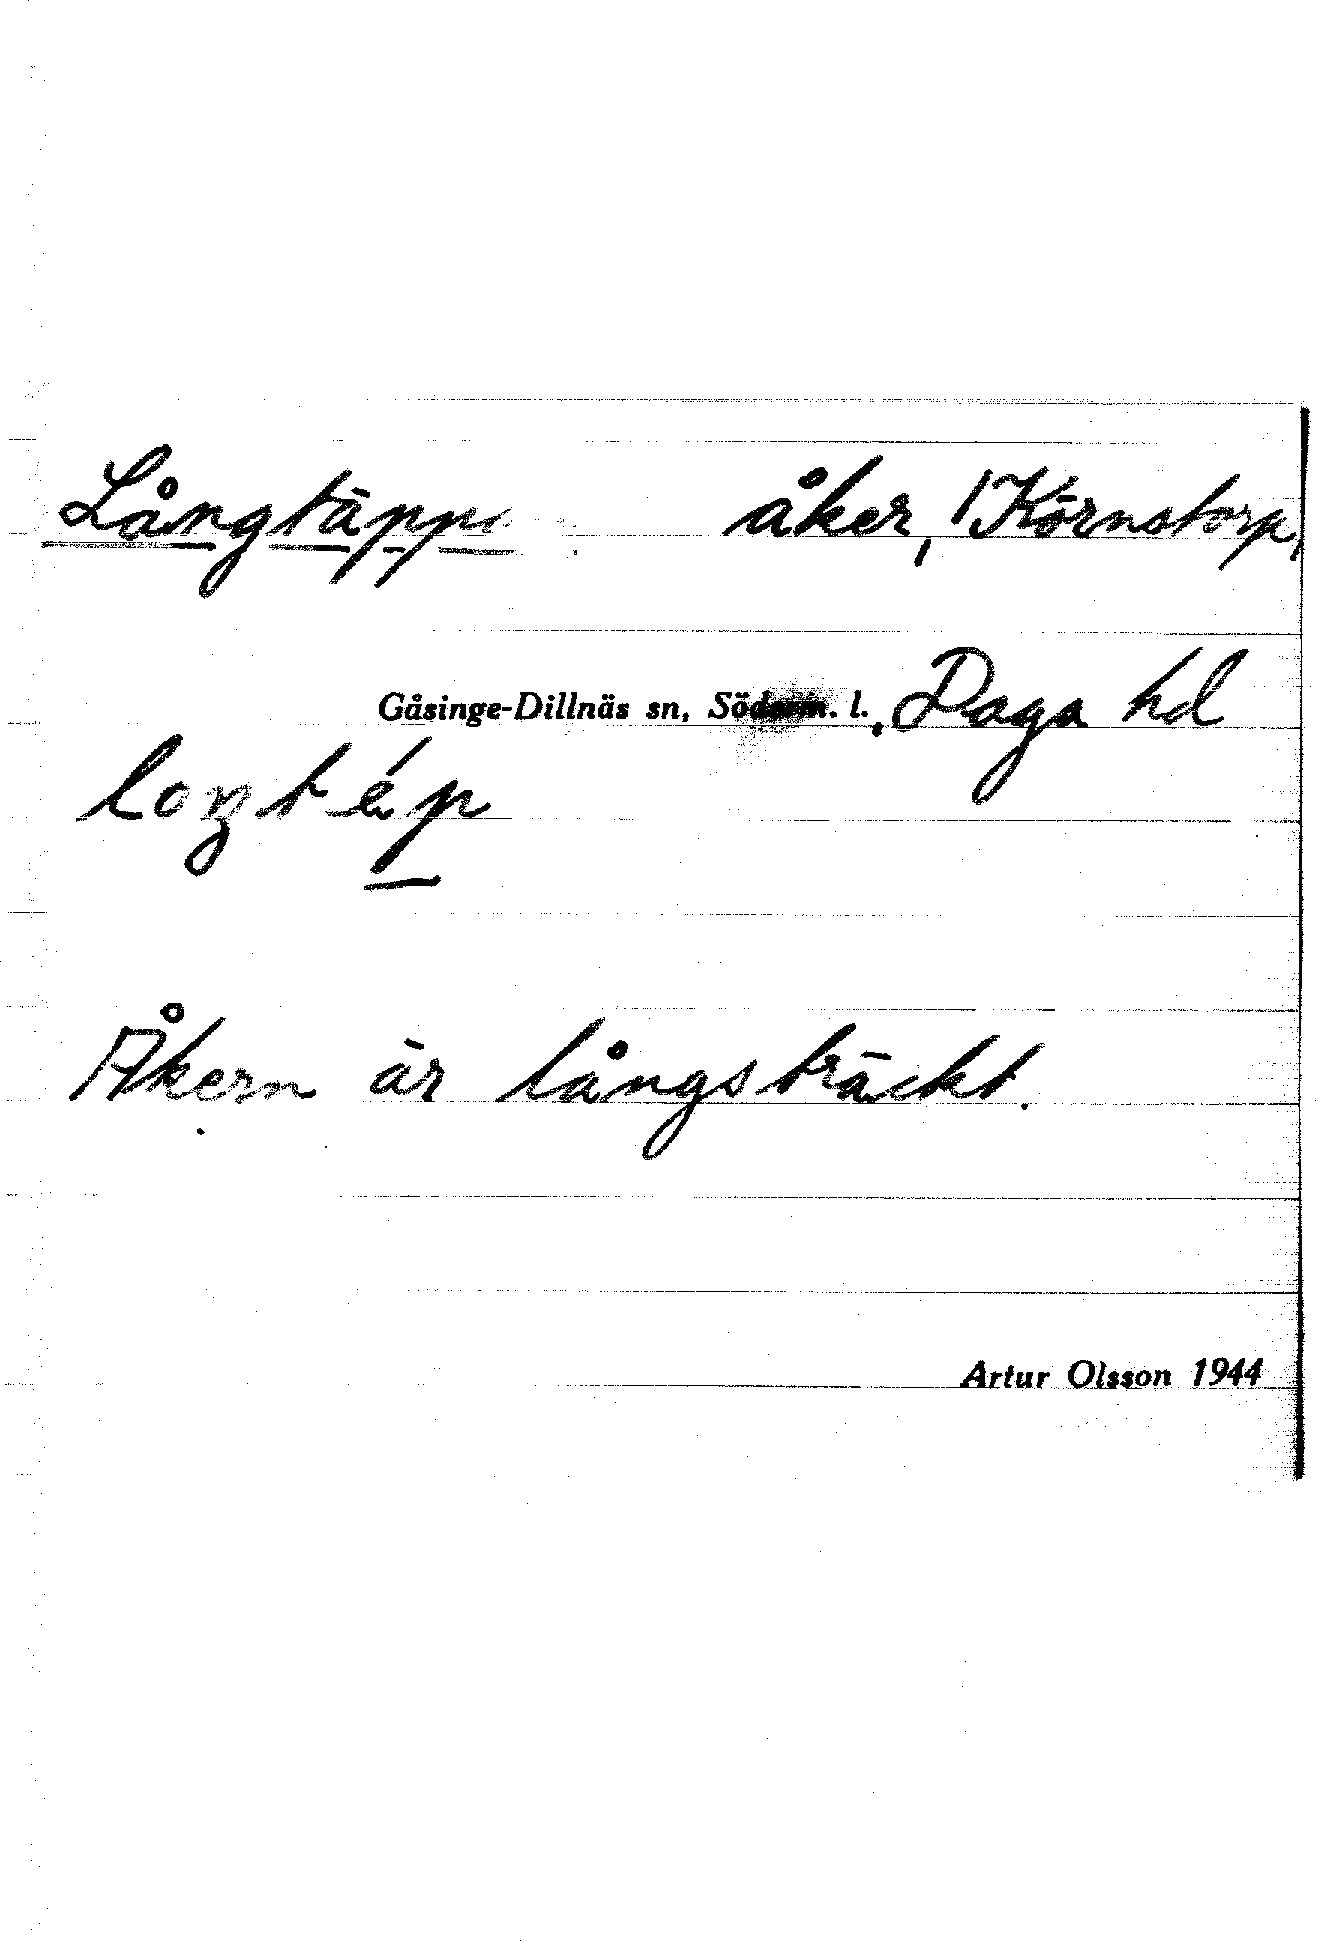 Långtäppe åker, /Körnstorp,
Gåsinge-Dillnäs sn, Söderm. l., Daga hd
loŋtép
Åkern är långsträckt.
Artur Olsson 1944